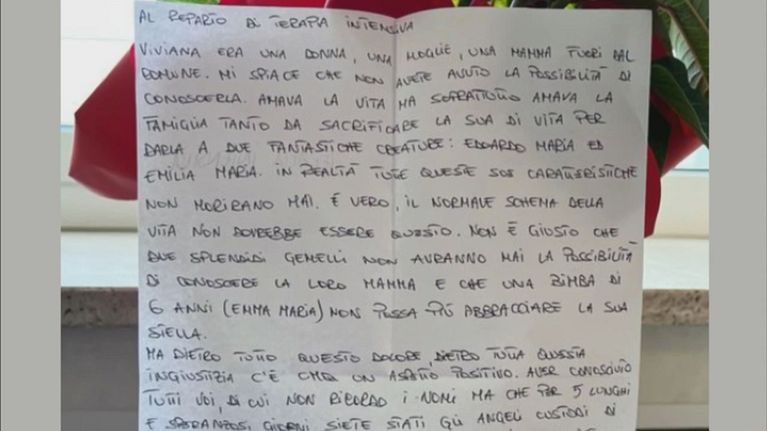 AL REPARTO DI TERAPIA INTENSIVA
VIVIANA ERA UNA DONNA, UNA MOGLIE, UNA MAMMA FUORI DAL
COMUNE. MI SPIACE CHE NON AVETE AVUTO LA POSSIBILITÀ DI
CONOSCERLA. AMAVA LA VITA MA SOPRATTUTTO AMAVA LA
FAMIGLIA TANTO DA SACRIFICARE LA SUA DI VITA PER
DARLA A DUE FANTASTICHE CREATURE: EDOARDO MARIA ED
EMILIA MARIA. IN REALTÀ TUTTE QUESTE SUE CARATTERISTICHE
NON MORIRANO MAI. È VERO, IL NORMALE SCHEMA DELLA
VITA NON DOVREBBE ESSERE QUESTO. NON È GIUSTO CHE
DUE SPLENDIDI GEMELLI NON AVRANNO MAI LA POSSIBILITÀ
DI CONOSCERE LA LORO MAMMA E CHE UNA BIMBA DI
6 ANNI (EMMA MARIA) NON POSSA PIÙ ABBRACCIARE LA SUA
STELLA.
MA DIETRO TUTTO QUESTO DOLORE, DIETRO TUTTA QUESTA
INGIUSTIZIA C'È UN ASPETTO POSITIVO. AVER CONOSCIUTO
TUTTI VOI, DI CUI NON RICORDO I NOMI MA CHE PER 5 LUNGHI
E SPERANZOSI GIORNI SIETE STATI GLI ANGELI CUSTODI DI